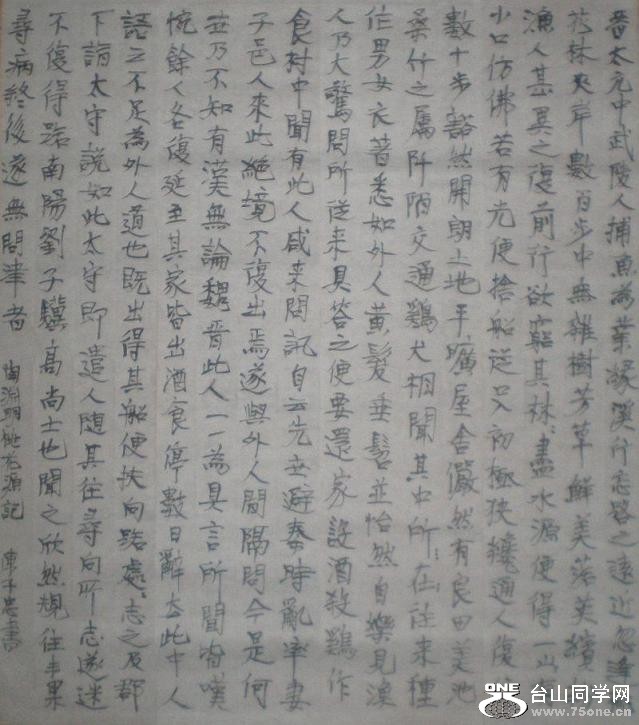 晉太元中武陵人捕魚為業緣溪行忘路之遠近忽逢
花林夾岸數百步中無雜樹芳草鮮美落英繽
漁人甚異之復前行欲窮其林:盡水源便得一山
小口仿佛若有光便捨船從口入初極狹纔通人復
數十步豁然開朗土地平曠屋舍儼然有良田美池
桑竹之屬阡陌交通鷄犬相聞其中所:在往來種
作男女衣著悉如外人黃髮垂髫並怡然自樂見漁
人乃大驚問所從来具答之便要還家設酒殺鷄作
食村中聞有此人咸来問訊自云先世避秦時亂率妻
子邑人來此絕境不復出焉遂與外人間隔問今是何
世乃不知有漢無論魏晉此人一一為具言所聞皆嘆
惋餘人各復延至其家皆出酒食停數日辭去此中人
語云不足為外人道也既出得其船便扶向路處:志之及郡
下詣太守說如此太守即遣人隨其往尋向所志遂迷
不復得路南陽劉子驥高尚士也聞之欣然規往未果
尋病終後遂無問津者 陶淵明桃花源記 子忠書
ONE
台山同学网
www.75one.cn